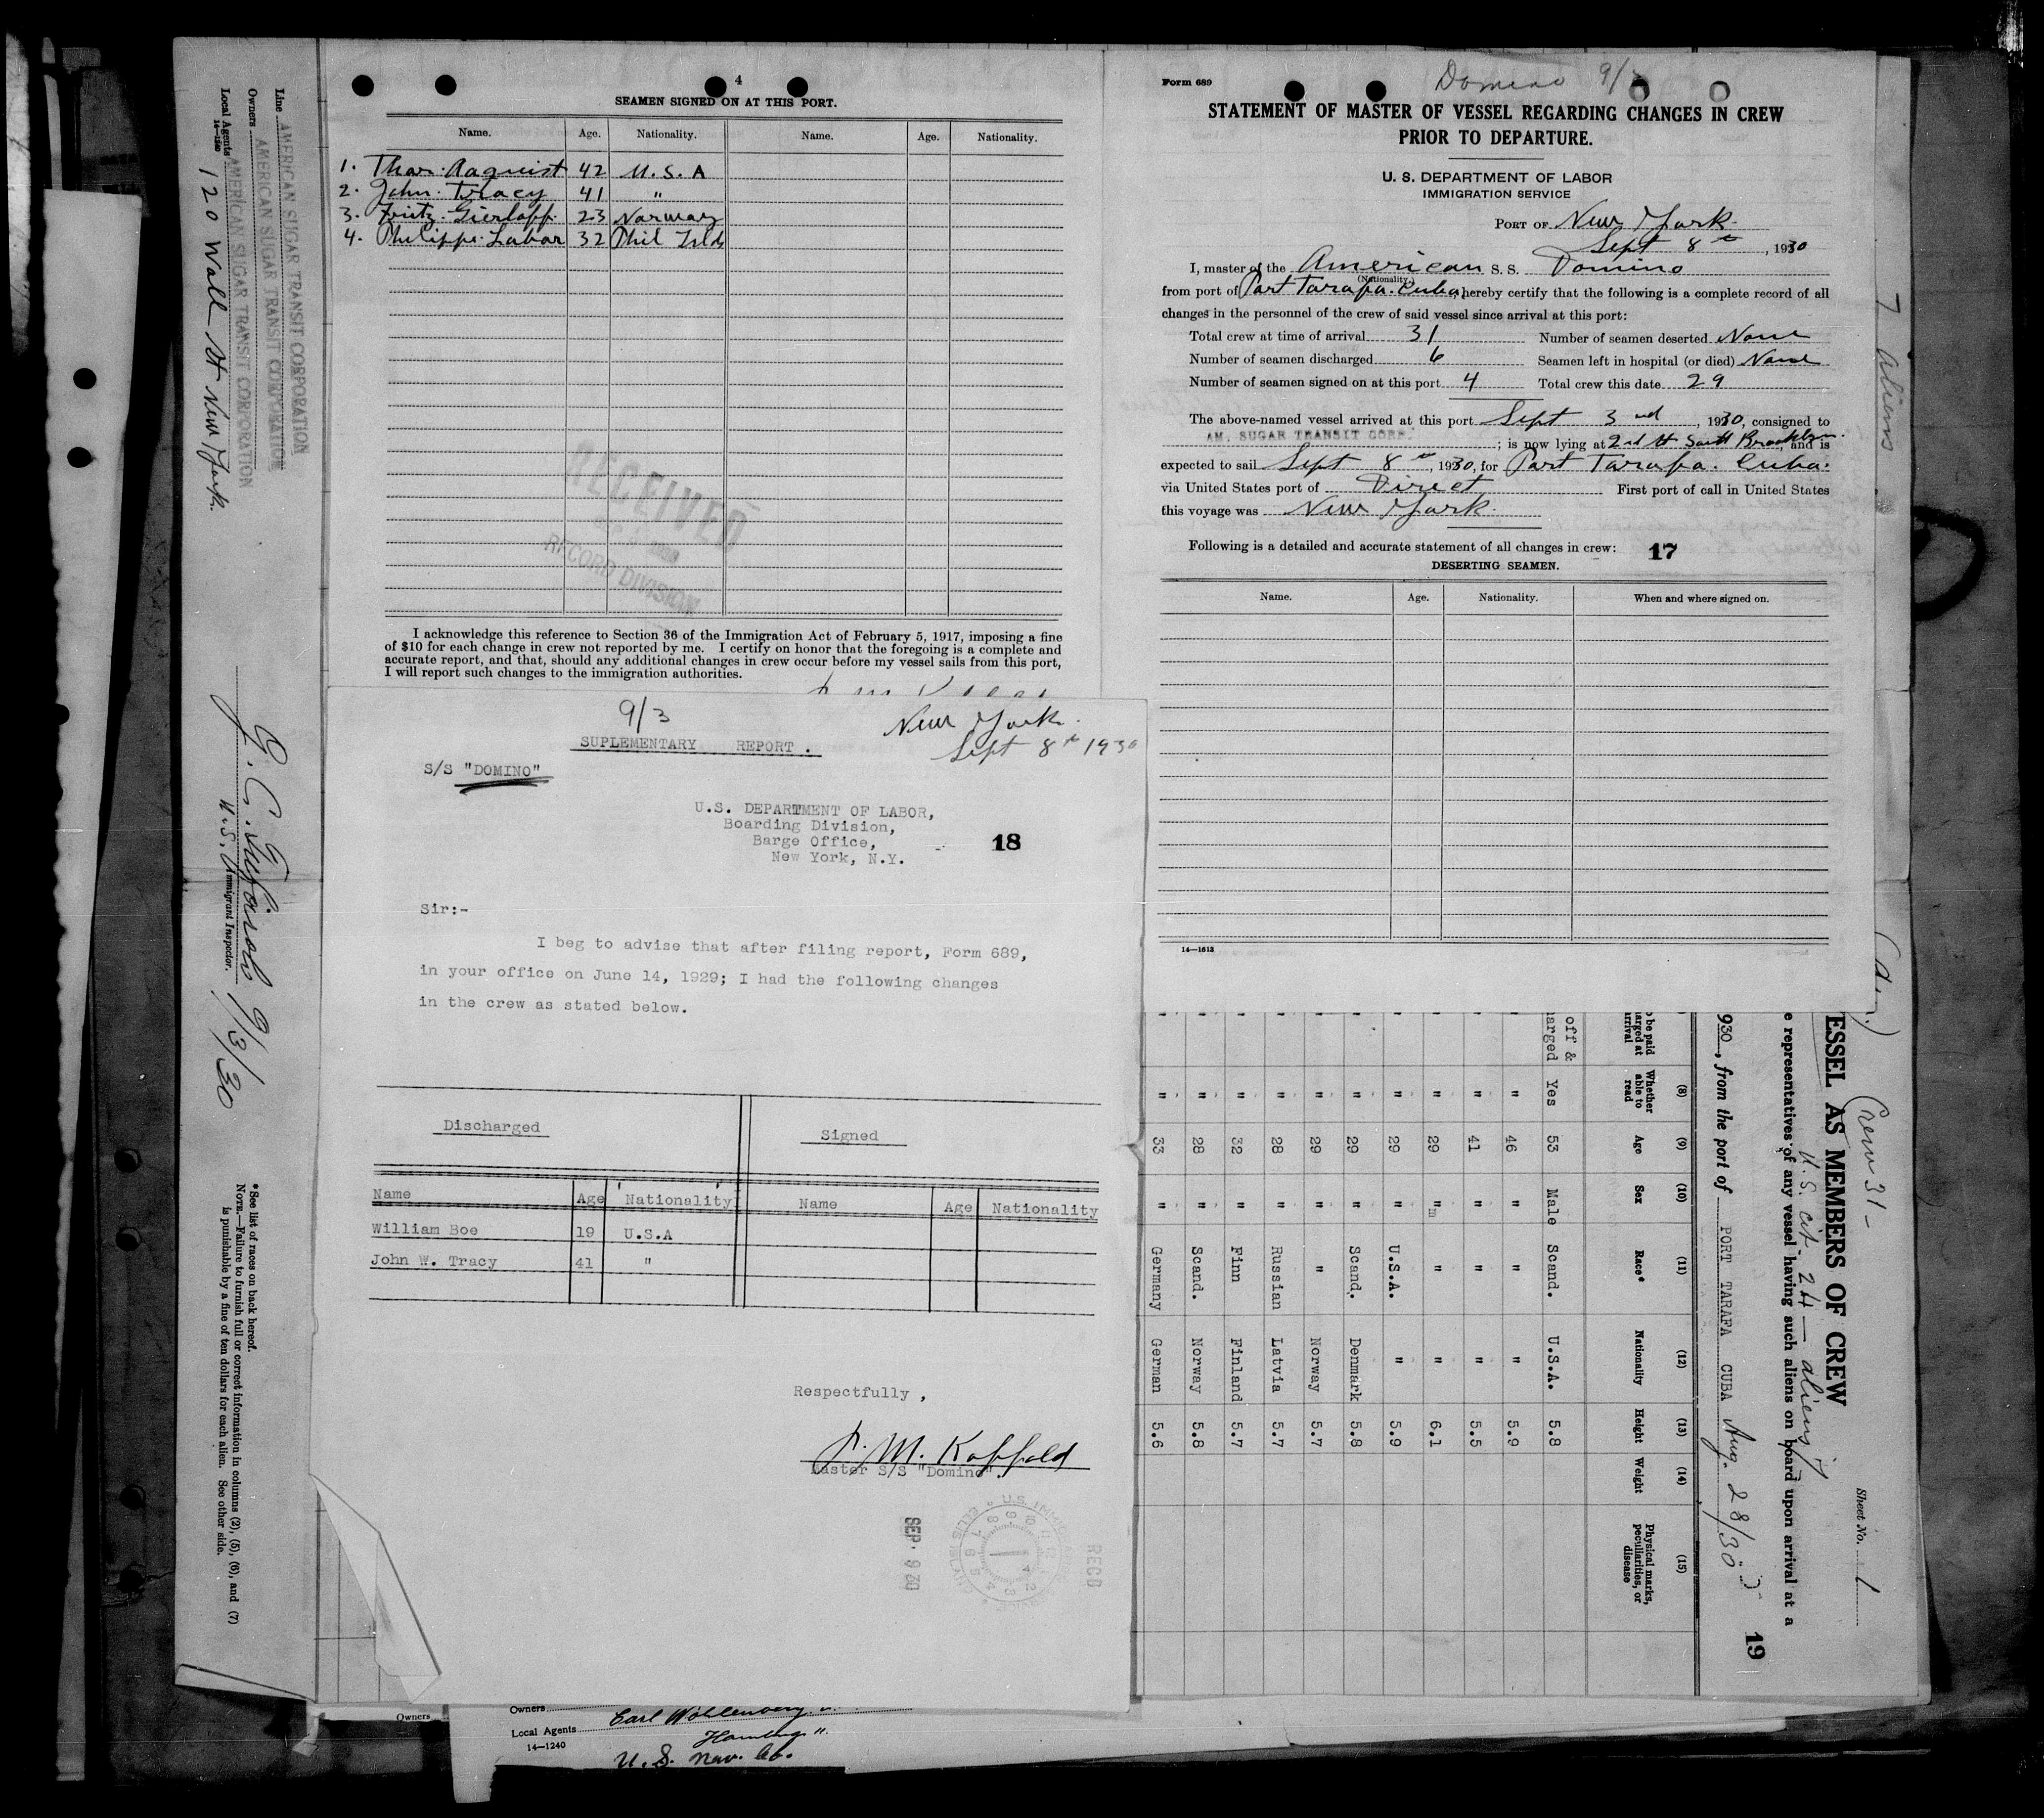 Line AMERICAN SUGAR TRANSIT CORPORATION
Owners AMERICAN SUGAR TRANSIT CORPORATION
Local Agents AMERICAN SUGAR TRANSIT CORPORATION
14-1240
120 Wall St New York.
9/3/30
U. S. Immigrant Inspector.
*See list of races on back hereof.
NOTE.—Failure to furnish full or correct information in columns (2), (5), (6), and (7)
is punishable by a fine of ten dollars for each alien. See other side.
4
SEAMEN SIGNED ON AT THIS PORT.
Name. Age. Nationality. Name. Age. Nationality.
1. Thor. Aaquist 42 U.S.A
2. John. Tracy 41 "
3. Fritz. Gierloff. 23 Norway
4. Philippe. Labar 32 Phil Islds
RECEIVED
RECORD DIVISION
I acknowledge this reference to Section 36 of the Immigration Act of February 5, 1917, imposing a fine
of $10 for each change in crew not reported by me. I certify on honor that the foregoing is a complete and
accurate report, and that, should any additional changes in crew occur before my vessel sails from this port,
I will report such changes to the immigration authorities.
9/3
New York.
Sept 8th 1930
SUPLEMENTARY REPORT.
S/S "DOMINO"
U.S. DEPARTMENT OF LABOR,
Boarding Division,
Barge Office,
New York, N.Y.
18
Sir:-
I beg to advise that after filing report, Form 689,
in your office on June 14, 1929; I had the following changes
in the crew as stated below.
Discharged Signed
Name Age Nationality Name Age Nationality
William Boe 19 U.S.A
John W. Tracy 41 "
Respectfully,
Master S/S "Domino".
SEP. 9 30
REC'D
Owners
Owners Carl Wohlenberg
Local Agents Hamburg "
14-1240
U. S. Nav. Co.
Form 689
Domino 9/3
STATEMENT OF MASTER OF VESSEL REGARDING CHANGES IN CREW
PRIOR TO DEPARTURE.
U. S. DEPARTMENT OF LABOR
IMMIGRATION SERVICE
PORT OF New York.
Sept 8th, 1930
I, master of the American S. S. Domino
(Nationality)
from port of Port Tarafa. Cuba, hereby certify that the following is a complete record of all
changes in the personnel of the crew of said vessel since arrival at this port:
Total crew at time of arrival 31 Number of seamen deserted None
Number of seamen discharged 6 Seamen left in hospital (or died) None
Number of seamen signed on at this port 4 Total crew this date 29
The above-named vessel arrived at this port Sept 3nd, 1930, consigned to
AM. SUGAR TRANSIT CORP.; is now lying at 2nd St South Brooklyn, and is
expected to sail Sept 8th, 1930, for Port Tarafa. Cuba.
via United States port of Direct First port of call in United States
this voyage was New York.
Following is a detailed and accurate statement of all changes in crew: 17
DESERTING SEAMEN.
Name. Age. Nationality. When and where signed on.
14-1613
7 aliens
Crew 31-
U.S. cit. 24 — aliens 7
Sheet No. 1
ESSEL AS MEMBERS OF CREW
e representatives of any vessel having such aliens on board upon arrival at a
930, from the port of PORT TARAFA CUBA Aug. 28/30
19
(8) (9) (10) (11) (12) (13) (14) (15)
be paid
arged at
arrival
Whether able to read Age Sex Race* Nationality Height Weight Physical marks, peculiarities, or disease
off &
arged Yes 53 Male Scand. U.S.A. 5.8
" " 46 " " " 5.9
" " 41 " " " 5.5
" " 29 " " " 6.1
" " 29 " U.S.A. " 5.9
" " 29 " Scand. Denmark 5.8
" " 29 " " Norway 5.7
" " 28 " Russian Latvia 5.7
" " 32 " Finn Finland 5.7
" " 28 " Scand. Norway 5.8
" " 33 " Germany German 5.6